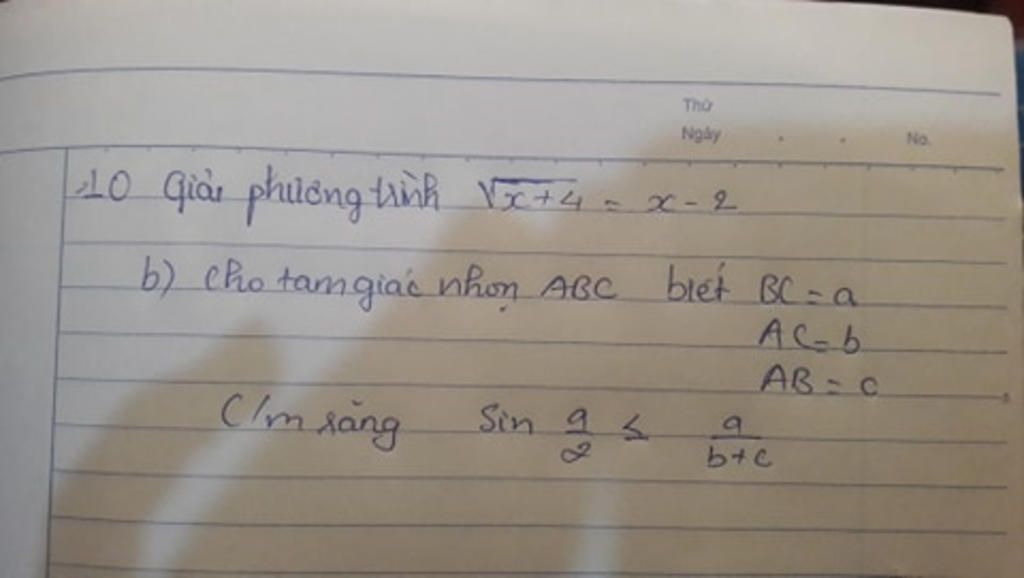 Thứ
Ngày . . No.
10 Giải phương trình √x+4 = x - 2
b) Cho tam giác nhọn ABC biết BC = a
AC = b
AB = c
C/m rằng Sin a/2 ≤ a/b+c